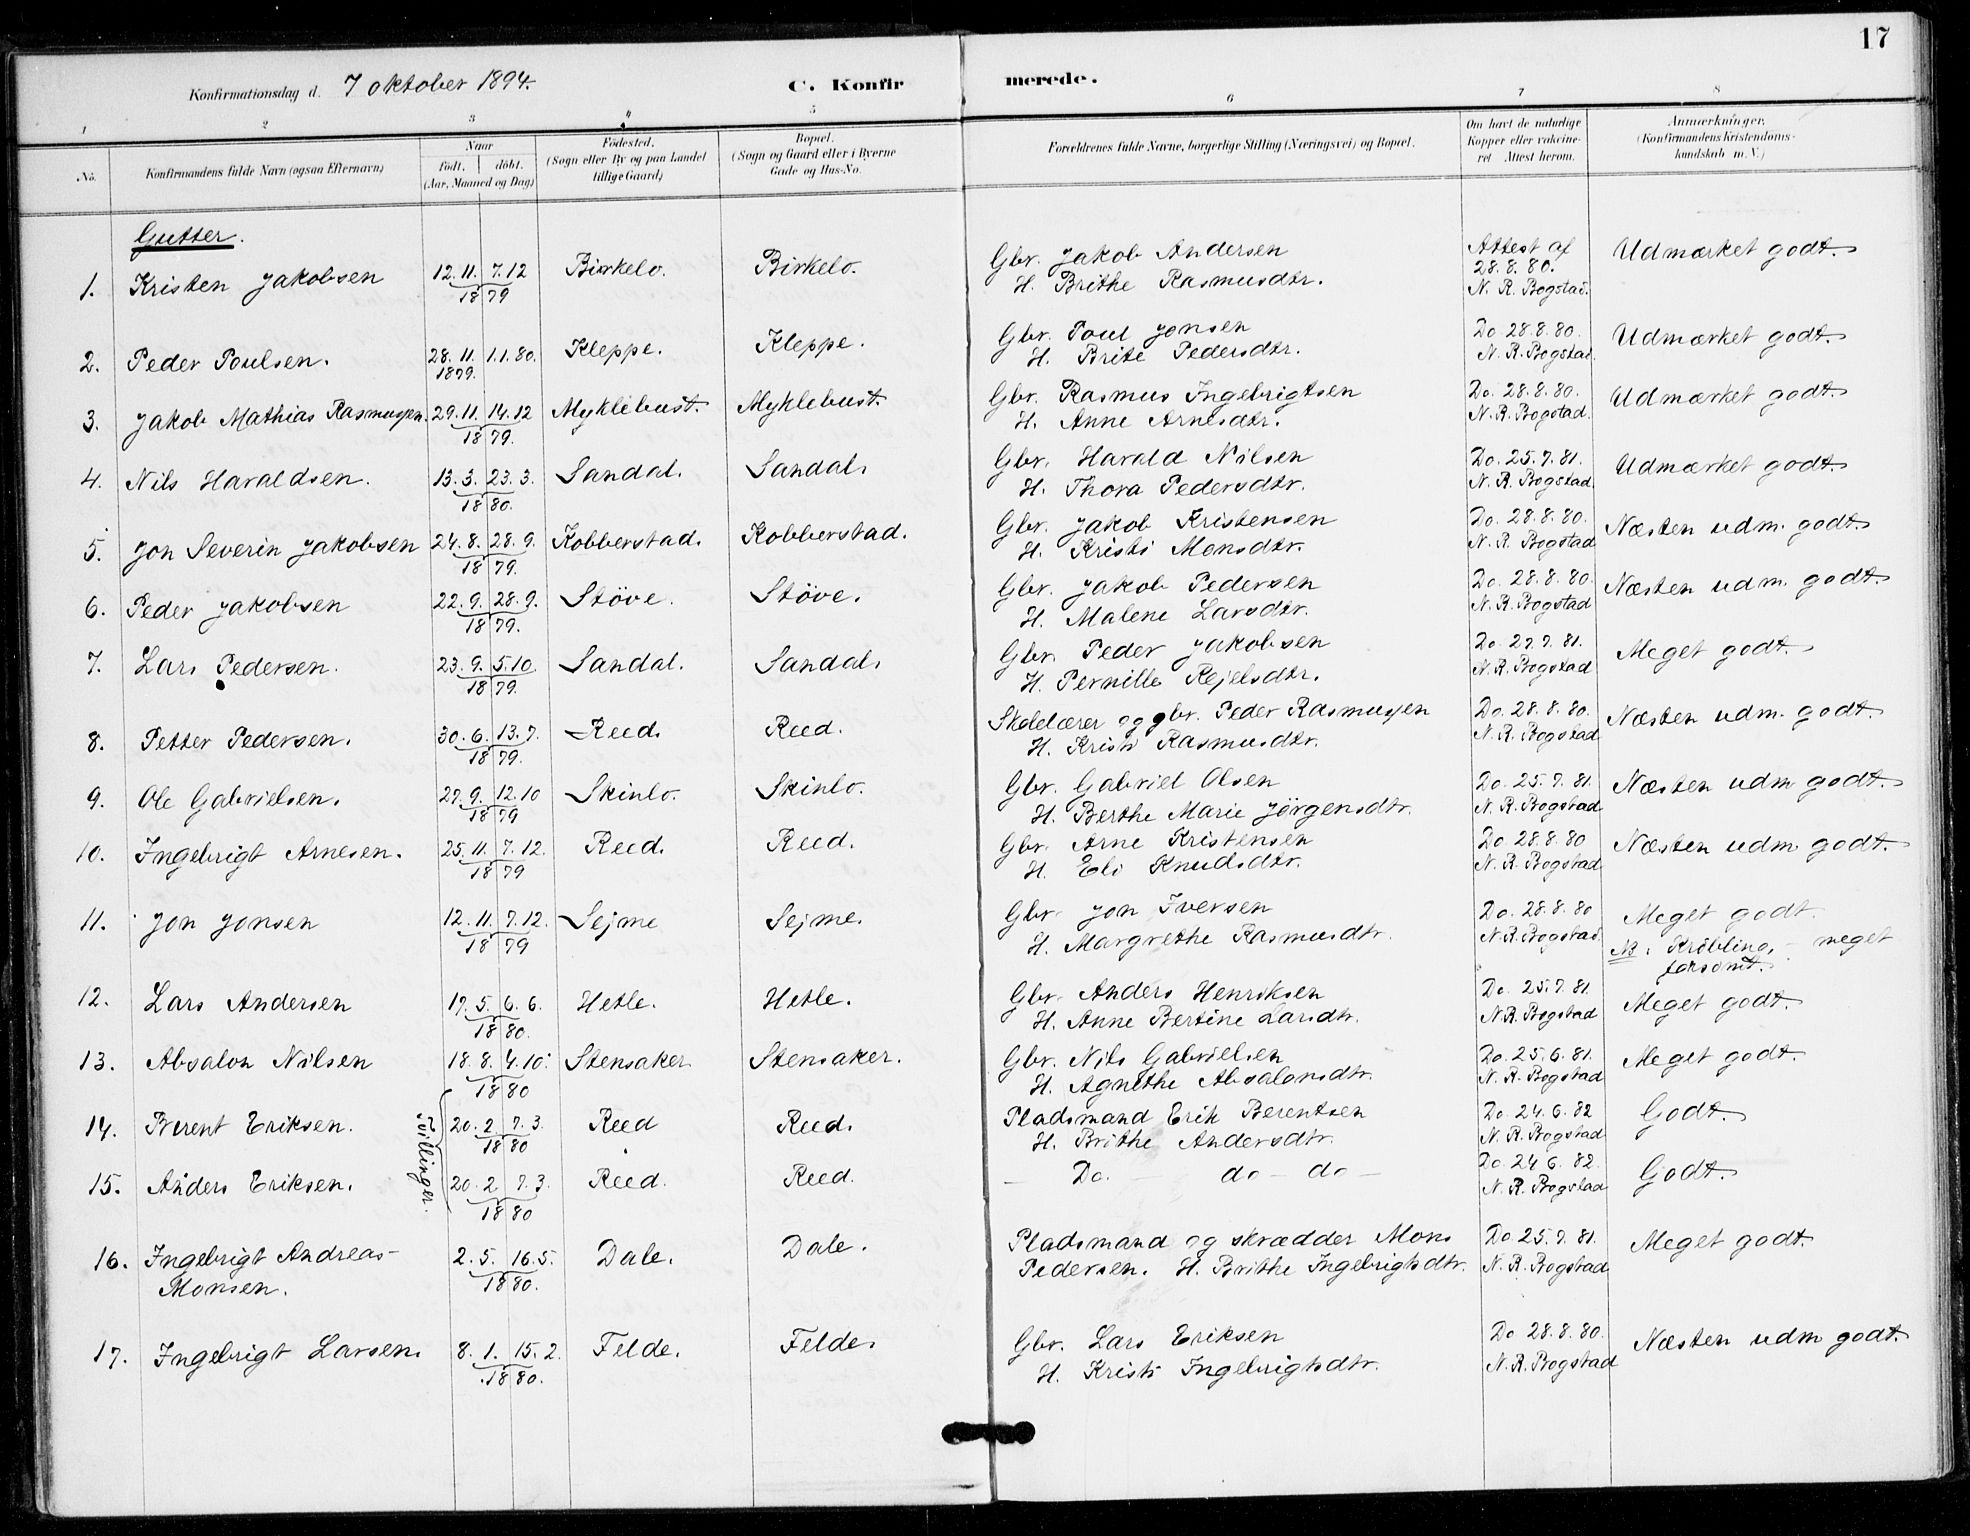 17
Konfirmationsdag d. 7 oktober 1894. C. Konfirmerede.
1 2 3 4 5 6 7 8
No. Konfirmandens fulde Navn (ogsaa Efternavn) Naar født. døbt. (Aar, Maaned og Dag) Fødested. (Sogn eller By og paa Landet tillige Gaard) Bopæl. (Sogn og Gaard eller i Byerne Gade og Hus-No. Forældrenes fulde Navne, borgerlige Stilling (Næringsvei) og Bopæl. Om havt de naturlige Kopper eller vakcineret Attest herom. Anmærkninger. (Konfirmandens Kristendomskundskab m. V.)
Gutter.
1. Kristen Jakobsen 12.11. 7.12 1879 Birkelo. Birkelo. Gbr. Jakob Andersen Attest af Udmærket godt.
H. Brithe Rasmusdtr. 28.8.80. N. R. Bogstad.
2. Peder Poulsen. 28.11. 1879. 1.1.80. Kleppe. Kleppe. Gbr. Poul Jonsen Do. 28.8.80. Udmærket godt.
H. Brite Pedersdtr. N. R. Bogstad.
3. Jakob Mathias Rasmussen. 29.11. 14.12 1879. Myklebust. Myklebust. Gbr. Rasmus Ingebrigtsen Do. 28.8.80. Udmærket godt.
H. Anne Arnesdtr. N. R. Bogstad.
4. Nils Haraldsen. 13.3. 23.3. 1880. Sandal. Sandal. Gbr. Harald Nilsen Do. 25.7.81. Udmærket godt.
H. Thora Pedersdtr. N. R. Bogstad.
5. Jon Severin Jakobsen 24.8. 28.9. 1879. Kobberstad. Kobberstad. Gbr. Jakob Kristensen Do. 28.8.80. Næsten udm. godt
H. Kristi Monsdtr. N. R. Bogstad
6. Peder Jakobsen 22.9. 28.9. 1879. Støve. Støve. Gbr. Jakob Pedersen Do. 28.8.80. Næsten udm. godt.
H. Malene Larsdtr. N. R. Bogstad
7. Lars Pedersen. 23.9. 5.10. 1879. Sandal. Sandal. Gbr. Peder Jakobsen Do. 27.7.81. Meget godt.
H. Pernille Rejelsdtr. N. R. Bogstad
8. Petter Pedersen. 30.6. 13.7. 1879. Reed. Reed. Skolelærer og gbr. Peder Rasmussen Do. 28.8.80. Næsten udm. godt.
H. Kristi Rasmusdtr. N. R. Bogstad
9. Ole Gabrielsen. 27.9. 12.10 1879 Skinlo. Skinlo. Gbr. Gabriel Olsen Do. 25.7.81. Næsten udm godt.
H. Berthe Marie Jörgensdtr. N. R. Bogstad
10. Ingebrigt Arnesen. 25.11. 7.12. 1879 Reed. Reed. Gbr. Arne Kristensen Do 28.8.80 Næsten udm godt.
H. Eli Knudsdtr. N. R. Bogstad
11. Jon Jonsen 12.11. 7.12. 1879 Sejme Sejme. Gbr. Jon Iversen Do. 28.8.80 Meget godt.
H. Margrethe Rasmusdtr. N. R. Bogstad. NB. Krøbling, – meget forsömt.
12. Lars Andersen 17.5. 6.6. 1880. Hetle. Hetle. Gbr. Anders Henriksen Do. 25.7.81 Meget godt.
H. Anne Bertine Larsdtr. N. R. Bogstad
13. Absalon Nilsen 18.8. 4.10. 1880 Stensaker Stensaker. Gbr. Nils Gabrielsen Do. 25.6.81. Meget godt.
H. Agnethe Absalonsdtr. N. R. Bogstad
Tvillinger.
14. Berent Eriksen. 20.2. 7.3. 1880 Reed Reed. Pladsmand Erik Berentsen Do. 24.6.82 Godt.
H. Brithe Andersdtr. N. R. Bogstad
15. Anders Eriksen. 20.2. 7.3. 1880 Reed. Reed. – Do. – do – do – Do 24 6. 82. Godt.
N. R. Bogstad
16. Ingebrigt Andreas- 2.5. 16.5. 1880. Dale. Dale. Pladsmand og skrædder Mons Do 25.7.81. Meget godt.
Monsen. Pedersen. H. Brithe Ingebrigtsdtr. N. R. Bogstad
17. Ingebrigt Larsen. 8.1. 15.2. 1880. Felde. Felde. Gbr. Lars Eriksen Do 28.8.80. Næsten udm godt.
H. Kristi Ingebrigtsdtr. N. R. Bogstad